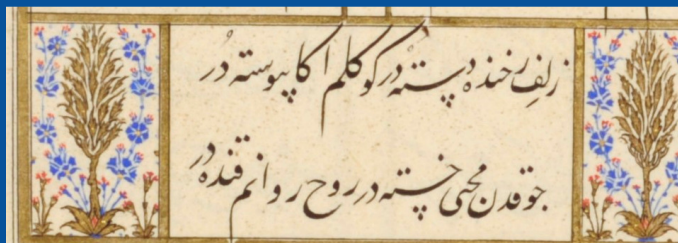 زلف رخنده دسته در کوکلم اکا پیوسته در
جوقدن محبی خسته در روح روانم قنده در